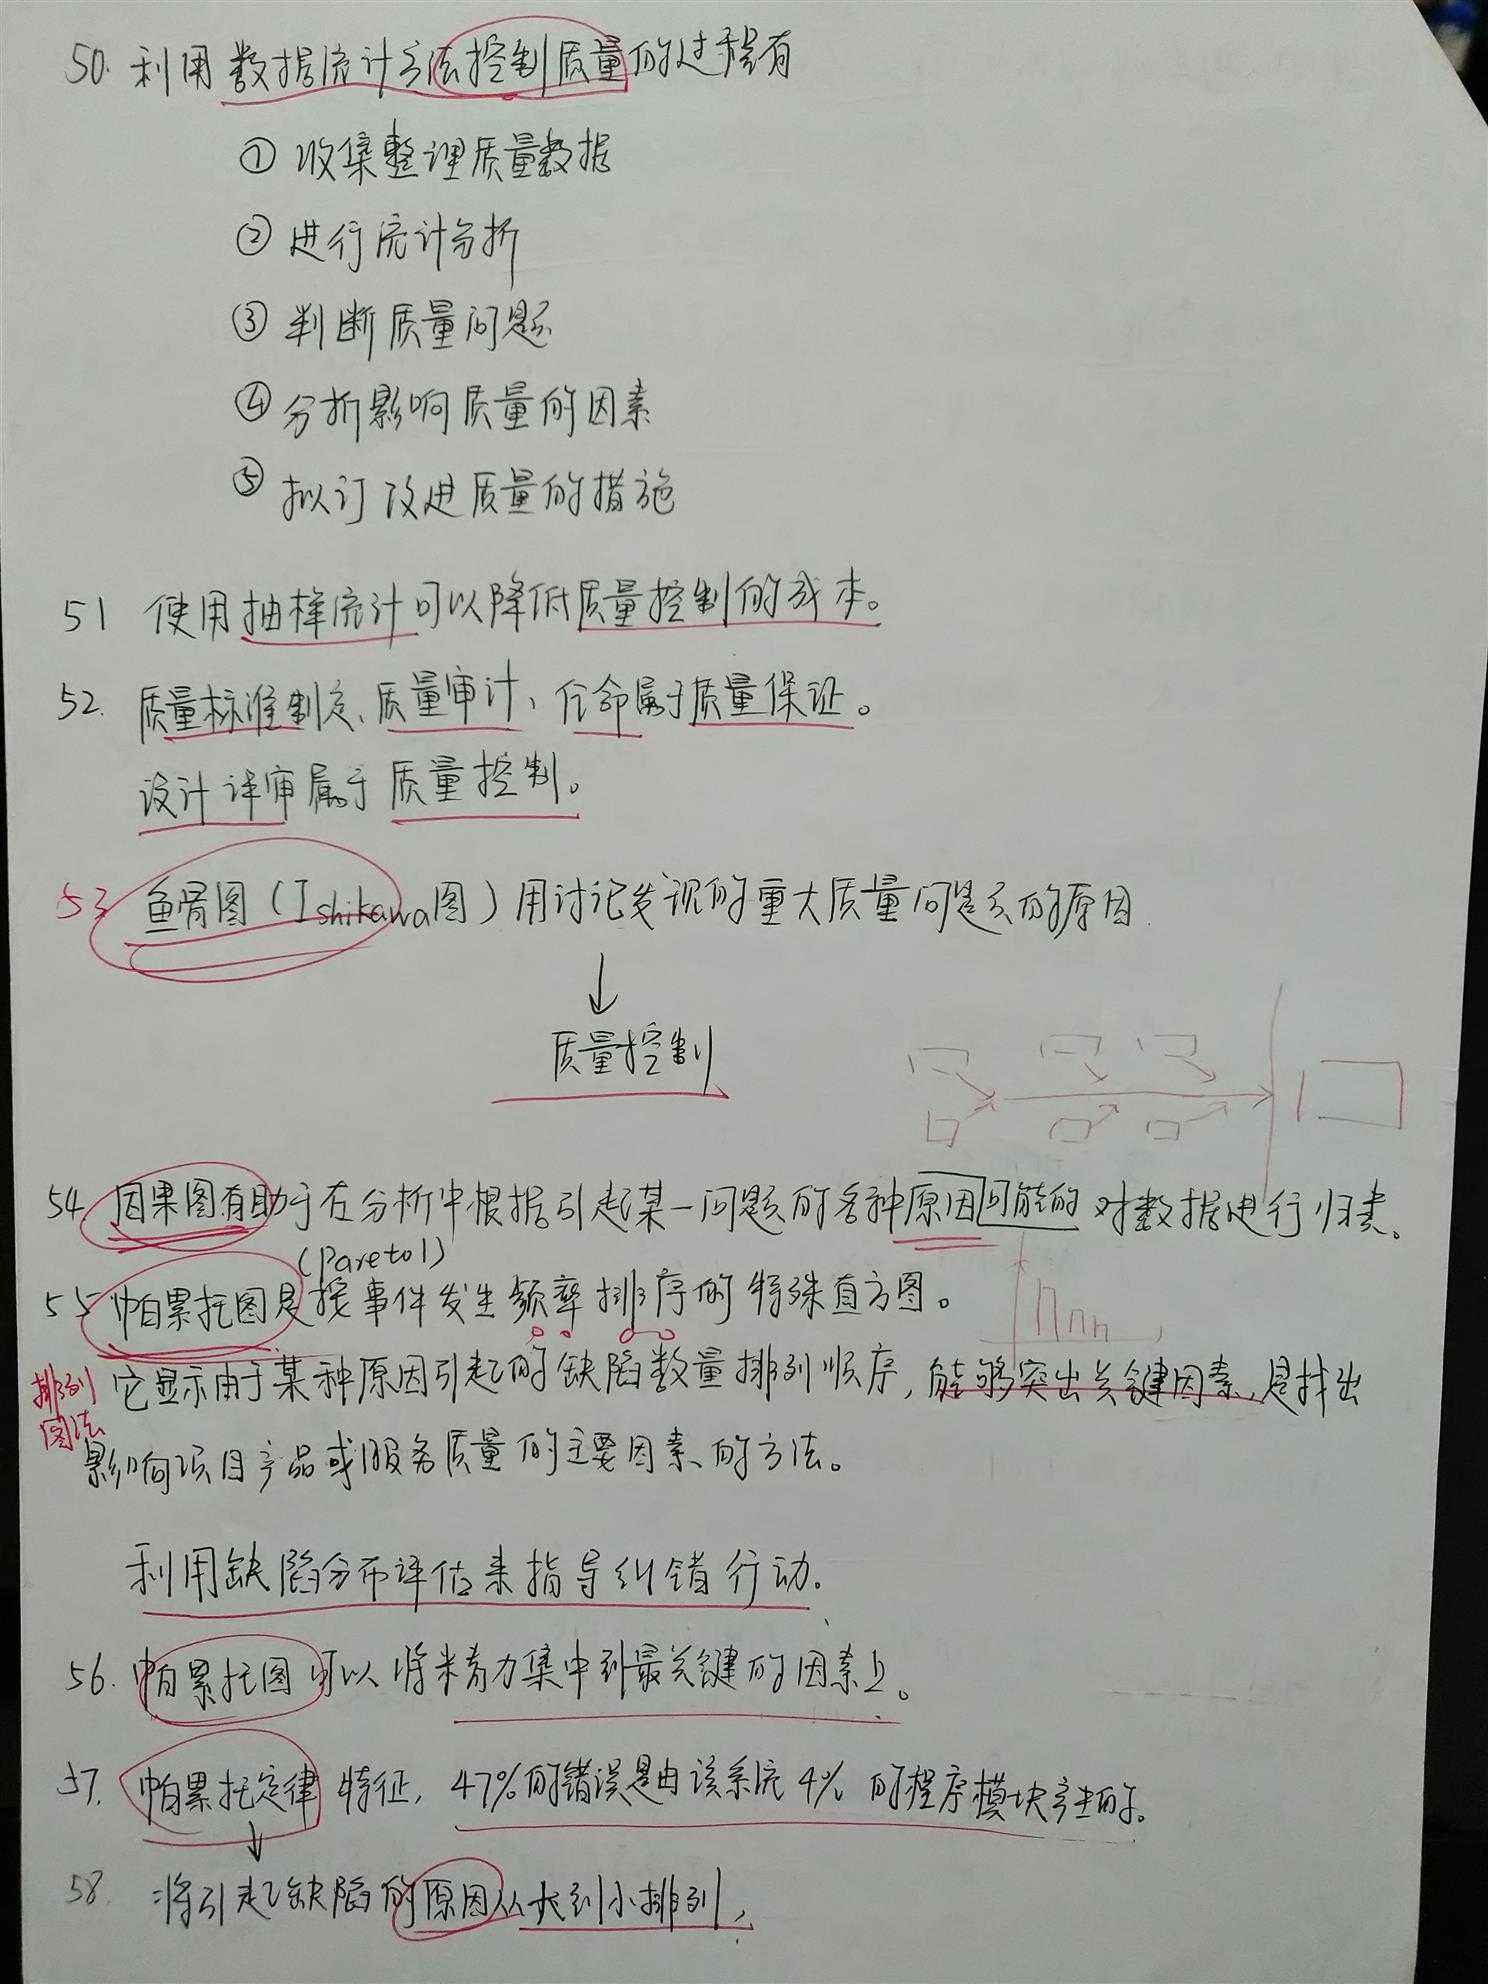 50. 利用数据统计方法控制质量的过程有
① 收集整理质量数据
② 进行统计分析
③ 判断质量问题
④ 分析影响质量的因素
⑤ 拟订改进质量的措施
51 使用抽样统计可以降低质量控制的成本。
52. 质量标准制定、质量审计、任命属于质量保证。
设计评审属于质量控制。
53 鱼骨图（Ishikawa图）用讨论发现的重大质量问题的原因
↓
质量控制
54 因果图有助于在分析中根据引起某一问题的各种原因可能的 对数据进行归类。
(Pareto)
55 帕累托图是按事件发生频率排序的特殊直方图。
排列
图法
它显示由于某种原因引起的缺陷数量排列顺序，能够突出关键因素，是找出
影响项目产品或服务质量的主要因素的方法。
利用缺陷分布评估来指导纠错行动。
56. 帕累托图可以将精力集中到最关键的因素上。
57. 帕累托定律特征，47%的错误是由该系统4%的程序模块产生的。
↓
58. 将引起缺陷的原因从大到小排列，